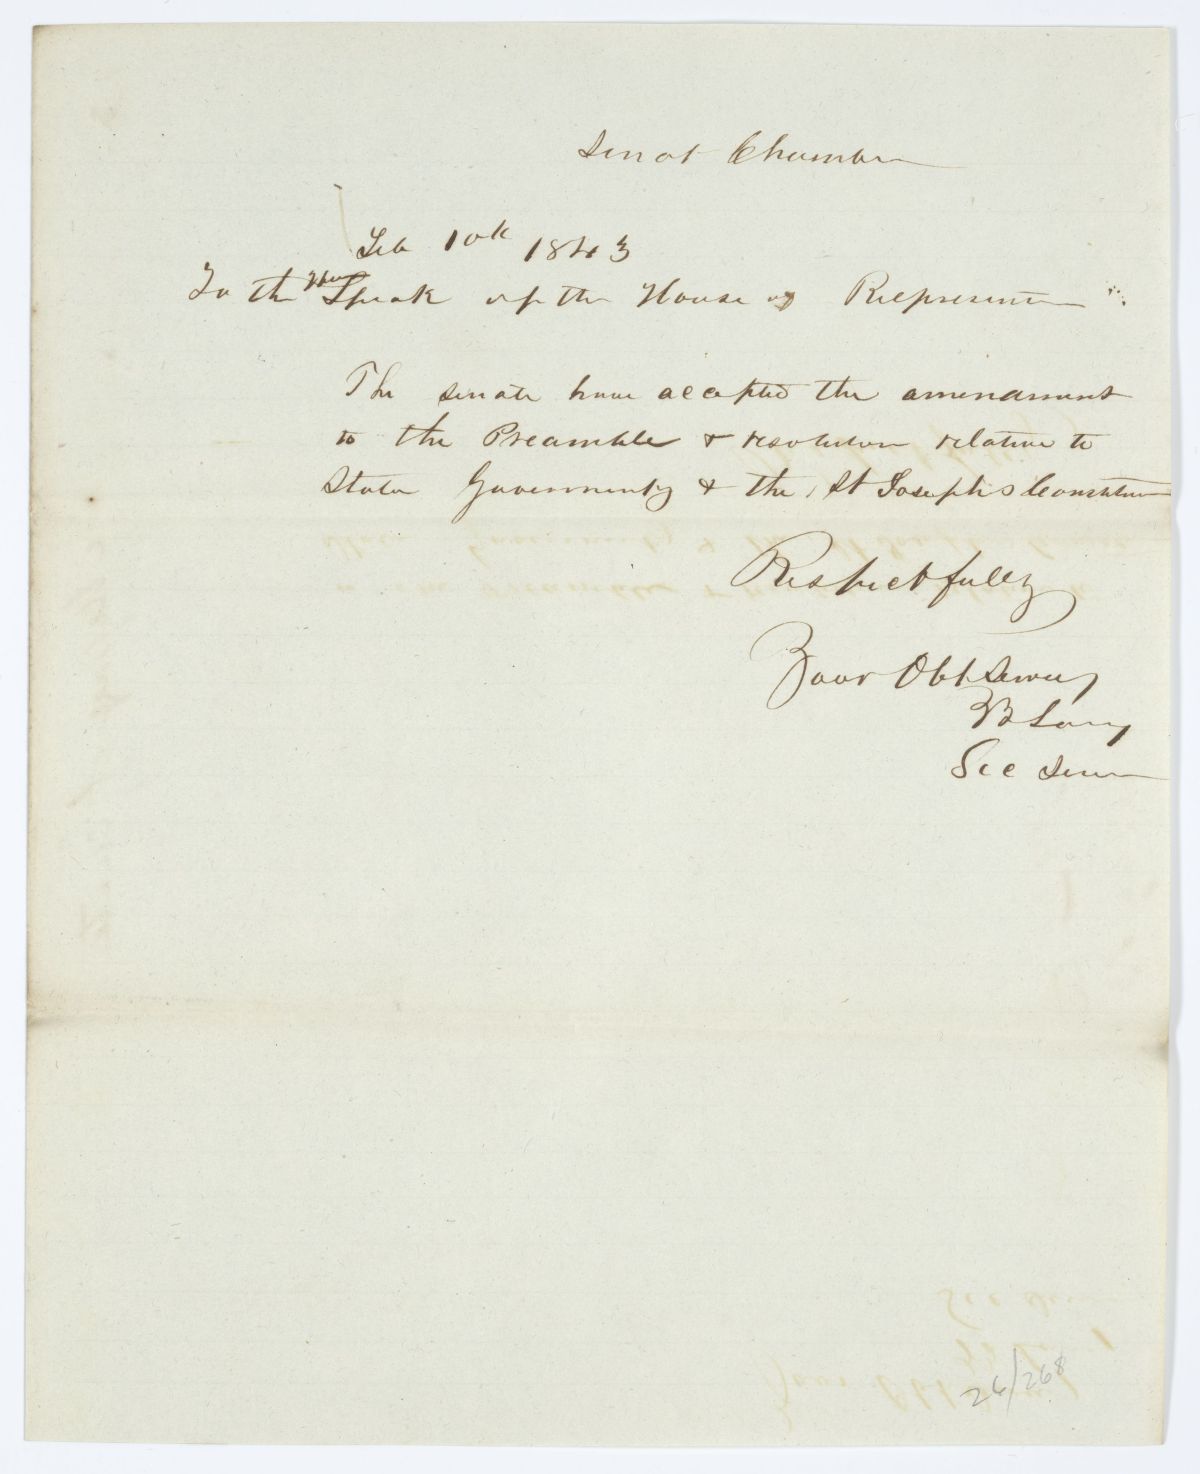 Senat Chamber
Feb 10th 1843
To the Hon Speak of the House of Representa
The Senate have accepted the amendament
to the Preamble & resolution relative to
State Government & the St Josephs Constitution
Respectfully
Your Obt Serv
Sec Senate
26/268